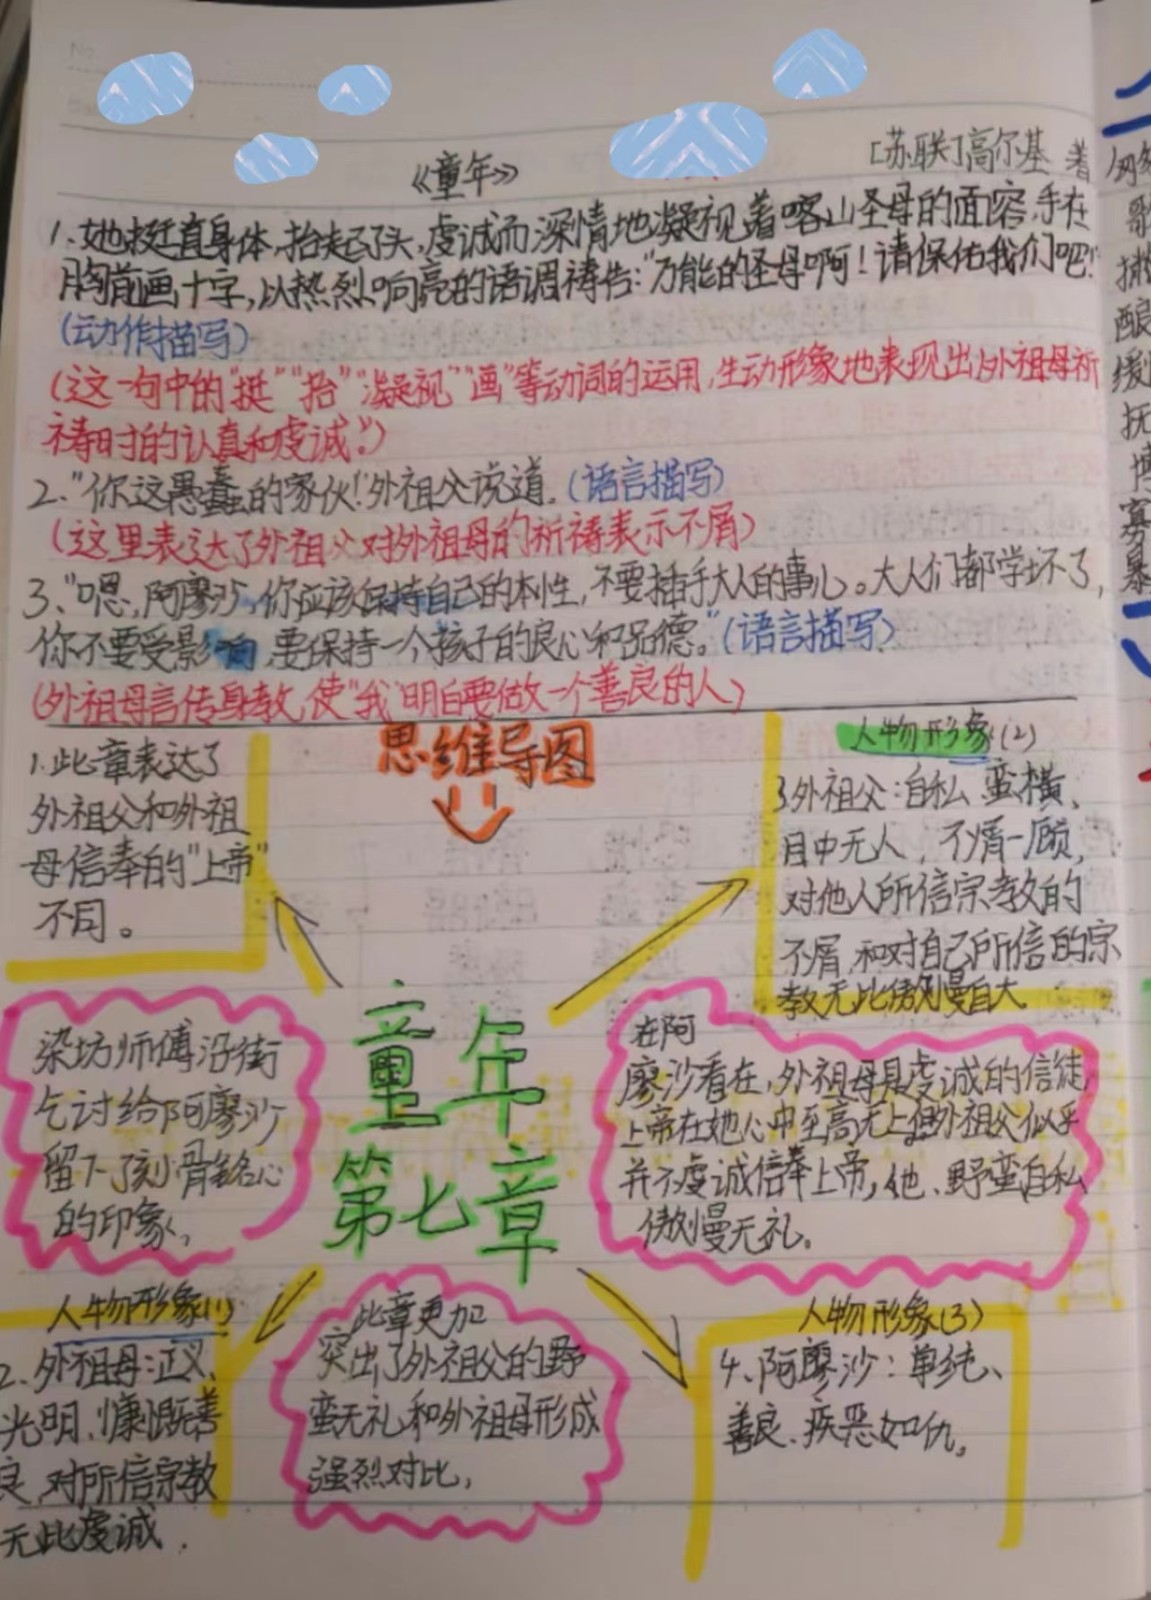 《童年》
[苏联]高尔基 著
1.她挺直身体,抬起了头,虔诚而深情地凝视着喀山圣母的面容,手在
胸前画十字,以热烈响亮的语调祷告:"万能的圣母啊!请保佑我们吧!"
(动作描写)
(这一句中的"挺""抬""凝视""画"等动词的运用,生动形象地表现出外祖母祈
祷时的认真和虔诚。")
2."你这愚蠢的家伙!"外祖父说道。(语言描写)
(这里表达了外祖父对外祖母的祈祷表示不屑)
3."嗯,阿廖沙,你应该保持自己的本性,不要插手大人的事儿。大人们都学坏了,
你不要受影响,要保持一个孩子的良心和品德。"(语言描写)
(外祖母言传身教,使"我"明白要做一个善良的人)
思维导图
1.此章表达了
外祖父和外祖
母信奉的"上帝"
不同。
人物形象(2)
3外祖父:自私、蛮横、
目中无人,不屑一顾,
对他人所信宗教的
不屑,和对自己所信的宗
教无比傲慢自大
童年
第七章
染坊师傅沿街
乞讨给阿廖沙
留下了刻骨铭心
的印象,
在阿
廖沙看在,外祖母是虔诚的信徒
上帝在她心中至高无上但外祖父似乎
并不虔诚信奉上帝,他、野蛮自私
傲慢无礼。
人物形象(1)
2.外祖母:正义、
光明、慷慨善
良,对所信宗教
无比虔诚.
此章更加
突出了外祖父的野
蛮无礼和外祖母形成
强烈对比,
人物形象(3)
4、阿廖沙:单纯、
善良、疾恶如仇。